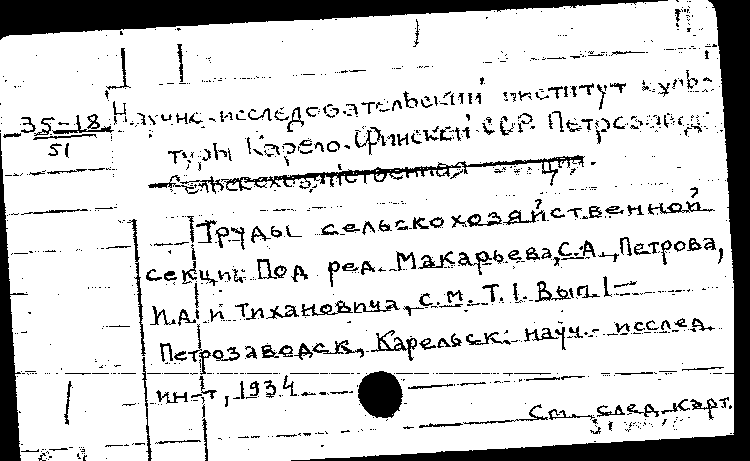 П
35-18
51
Научно-исследовательский институт куль-
туры Карело-Финской ССР. Петрозавод
Сельскохозяйственная секция.
Труды сельскохозяйственной
секции. Под ред. Макарьева, С.А., Петрова,
И.А. и Тихановича, С.М. Т.1. Вып.1—
Петрозаводск, Карельск. науч.- исслед.
ин-т, 1934
См. след. карт.